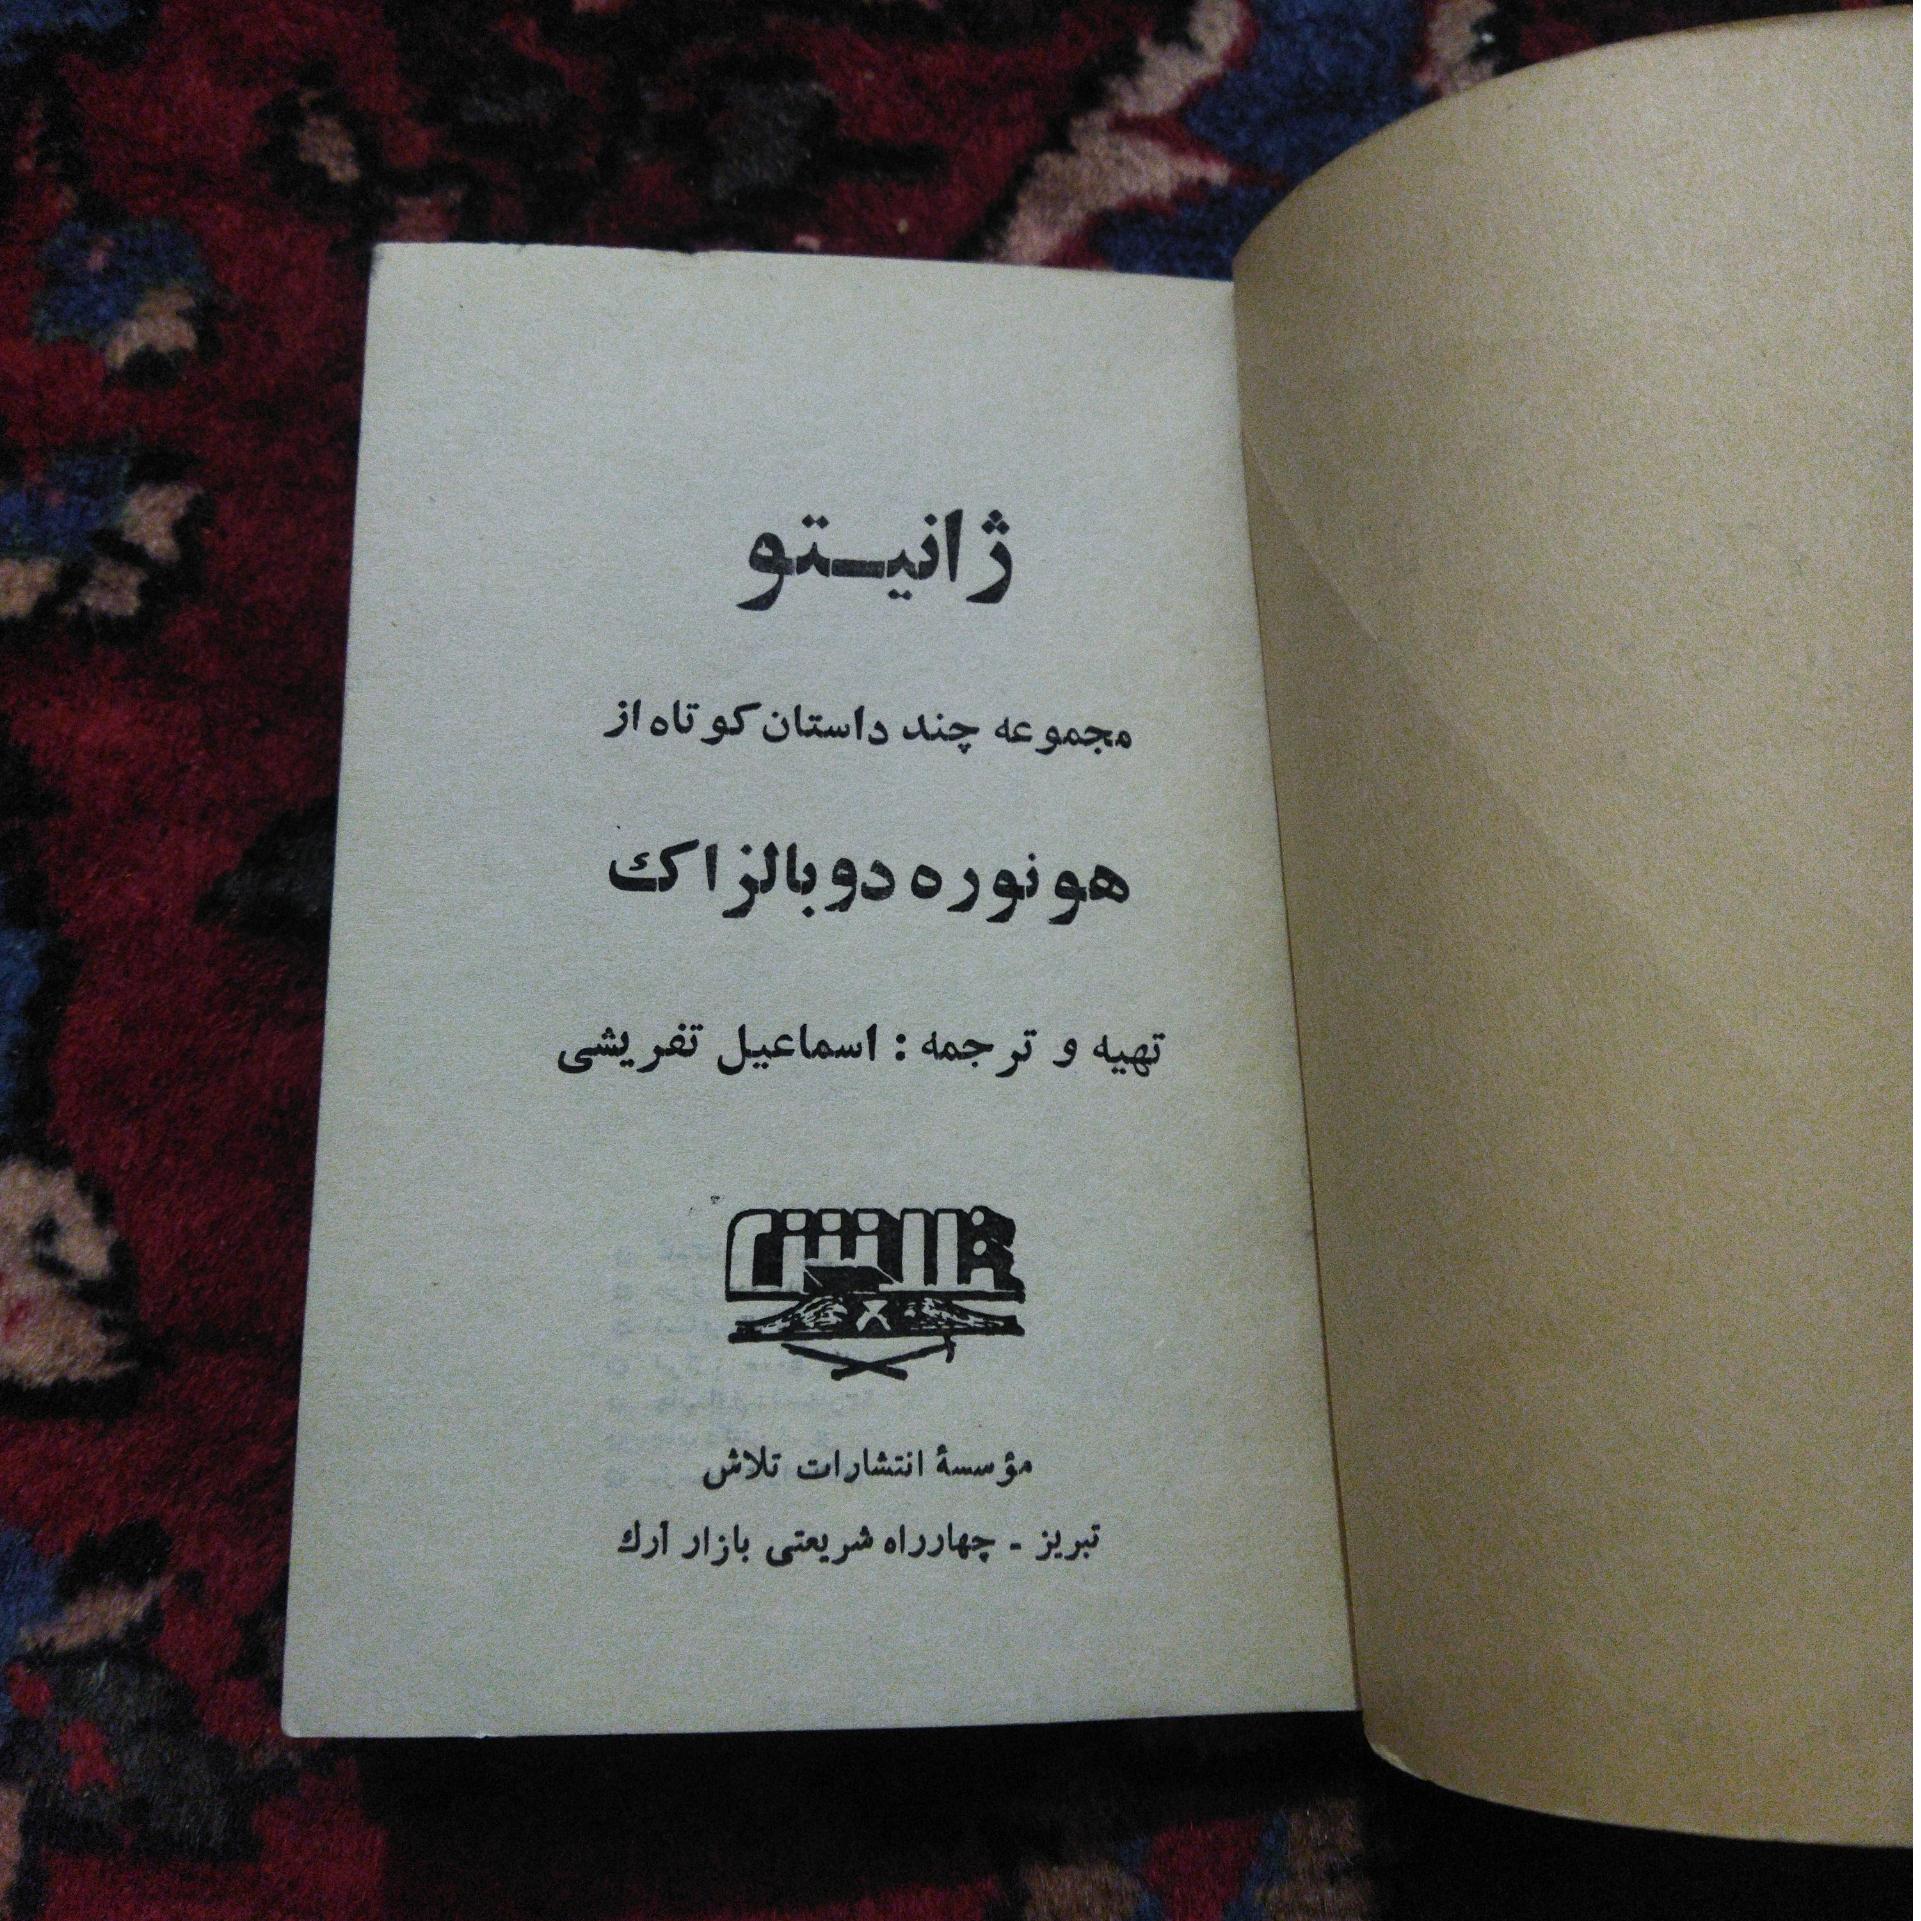 ژانیتو
مجموعه چند داستان کوتاه از
هونوره دوبالزاک
تهیه و ترجمه : اسماعیل تفریشی
تلاش
مؤسسهٔ انتشارات تلاش
تبریز - چهارراه شریعتی بازار ارك